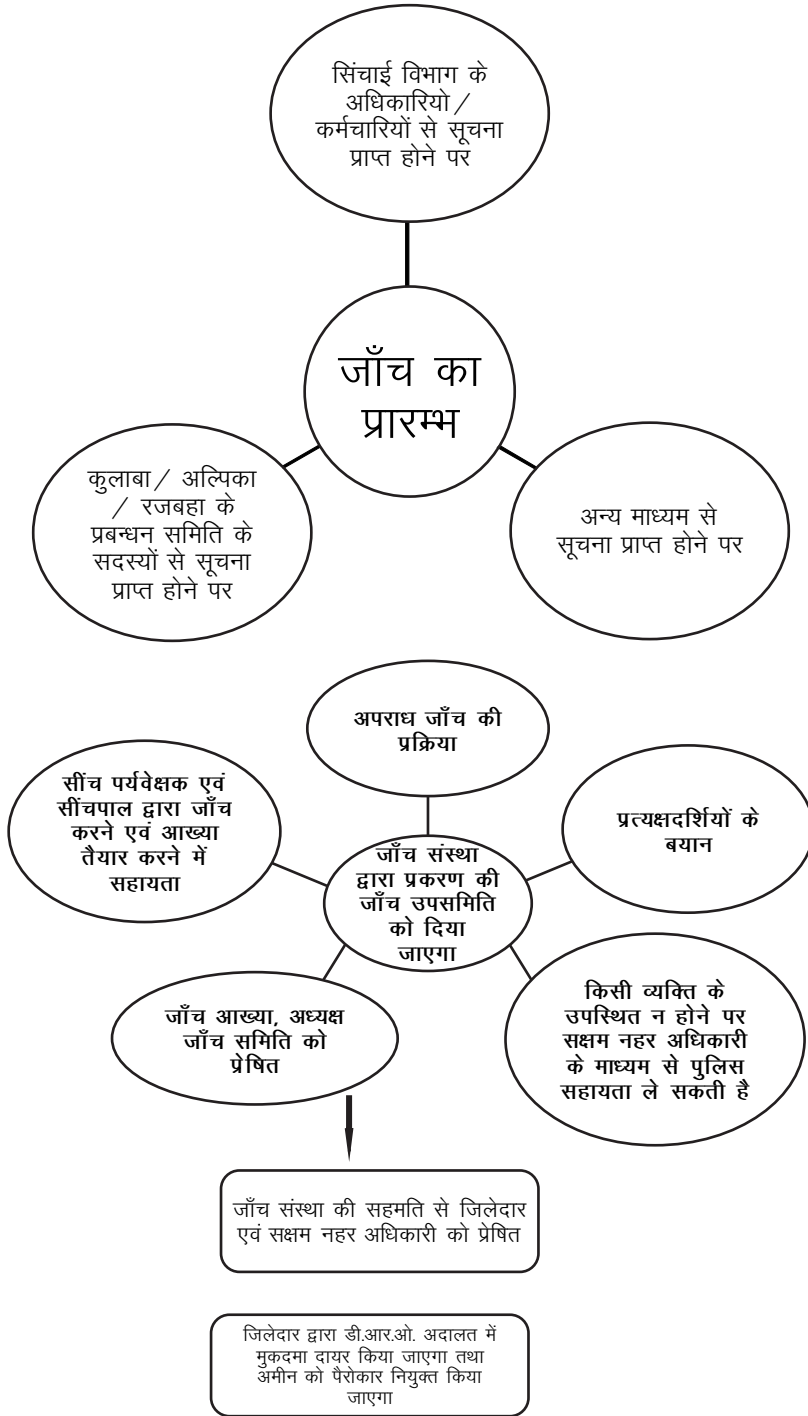 सिंचाई विभाग के
अधिकारियो/
कर्मचारियों से सूचना
प्राप्त होने पर
जाँच का
प्रारम्भ
कुलाबा/ अल्पिका
/ रजबहा के
प्रबन्धन समिति के
सदस्यों से सूचना
प्राप्त होने पर
अन्य माध्यम से
सूचना प्राप्त होने पर
अपराध जाँच की
प्रक्रिया
सींच पर्यवेक्षक एवं
सींचपाल द्वारा जाँच
करने एवं आख्या
तैयार करने में
सहायता
प्रत्यक्षदर्शियों के
बयान
जाँच संस्था
द्वारा प्रकरण की
जाँच उपसमिति
को दिया
जाएगा
जाँच आख्या, अध्यक्ष
जाँच समिति को
प्रेषित
किसी व्यक्ति के
उपस्थित न होने पर
सक्षम नहर अधिकारी
के माध्यम से पुलिस
सहायता ले सकती है
जाँच संस्था की सहमति से जिलेदार
एवं सक्षम नहर अधिकारी को प्रेषित
जिलेदार द्वारा डी.आर.ओ. अदालत में
मुकदमा दायर किया जाएगा तथा
अमीन को पैरोकार नियुक्त किया
जाएगा